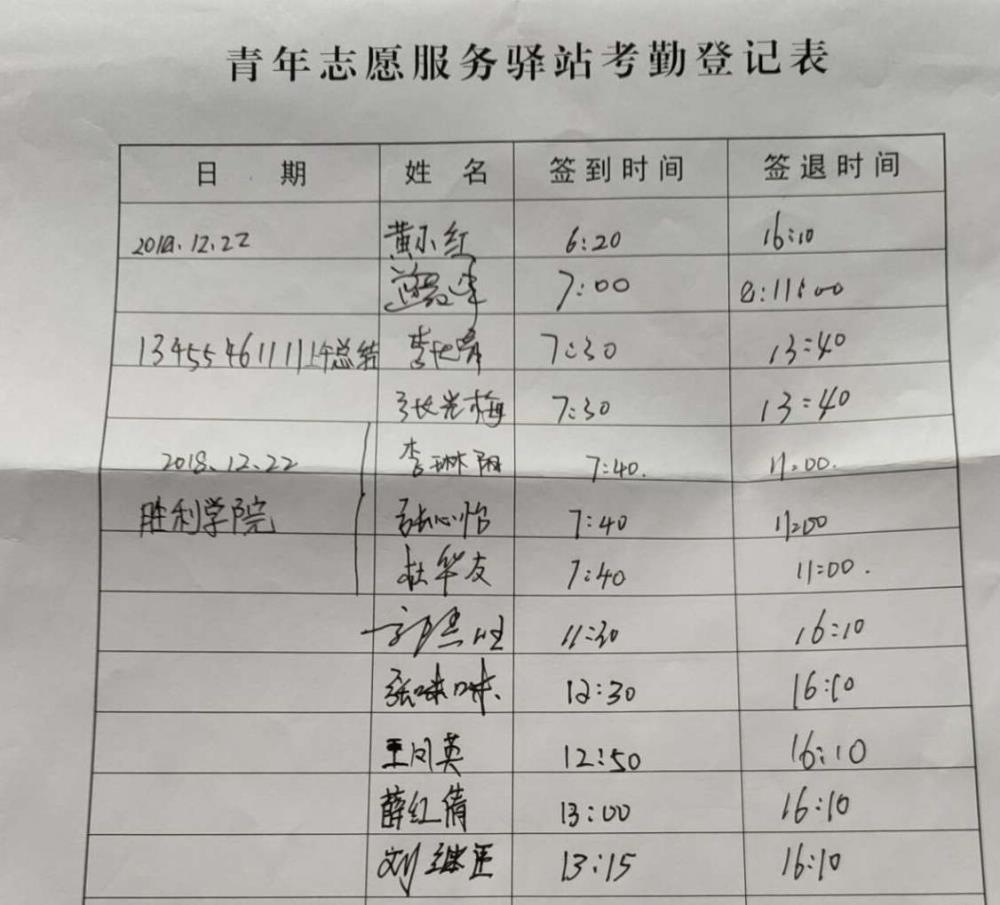 青年志愿服务驿站考勤登记表
日 期 姓 名 签到时间 签退时间
2018.12.22 黄小红 6:20 16:10
7:00 11:00
13455461111上午总结 李 7:30 13:40
张光梅 7:30 13:40
2018.12.22 李琳阳 7:40. 11:00.
胜利学院 张心怡 7:40 11:00
杜华友 7:40 11:00.
11:30 16:10
张咪咪. 12:30 16:10
王凤英 12:50 16:10
薛红倩 13:00 16:10
刘继正 13:15 16:10